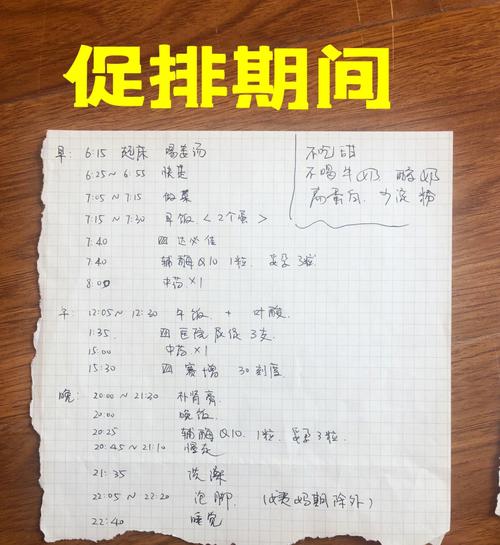 促排期间
早: 6:15 起床 喝姜汤
6:25 ~ 6:55 快走
7:05 ~ 7:15 做菜
7:15 ~ 7:30 早饭 <2个蛋>
7:40 四达必佳
7:40 辅酶Q10 1粒. 爱孕3粒.
8:00 中药×1
不吃甜
不喝牛奶 酸奶
高蛋白. 少淀粉
午: 12:05 ~ 12:30 午饭. + 叶酸.
1:35. 医院 尿促 3支.
15:00 中药×1
15:30 赛增 30刻度
晚: 20:00 ~ 21:30 补肾膏
20:00 晚饭.
20:25 辅酶Q10. 1粒. 爱孕3粒.
20:45 ~ 21:10 慢走
21:35 洗澡
22:05 ~ 22:20 泡脚. (姨妈期除外)
22:40 睡觉